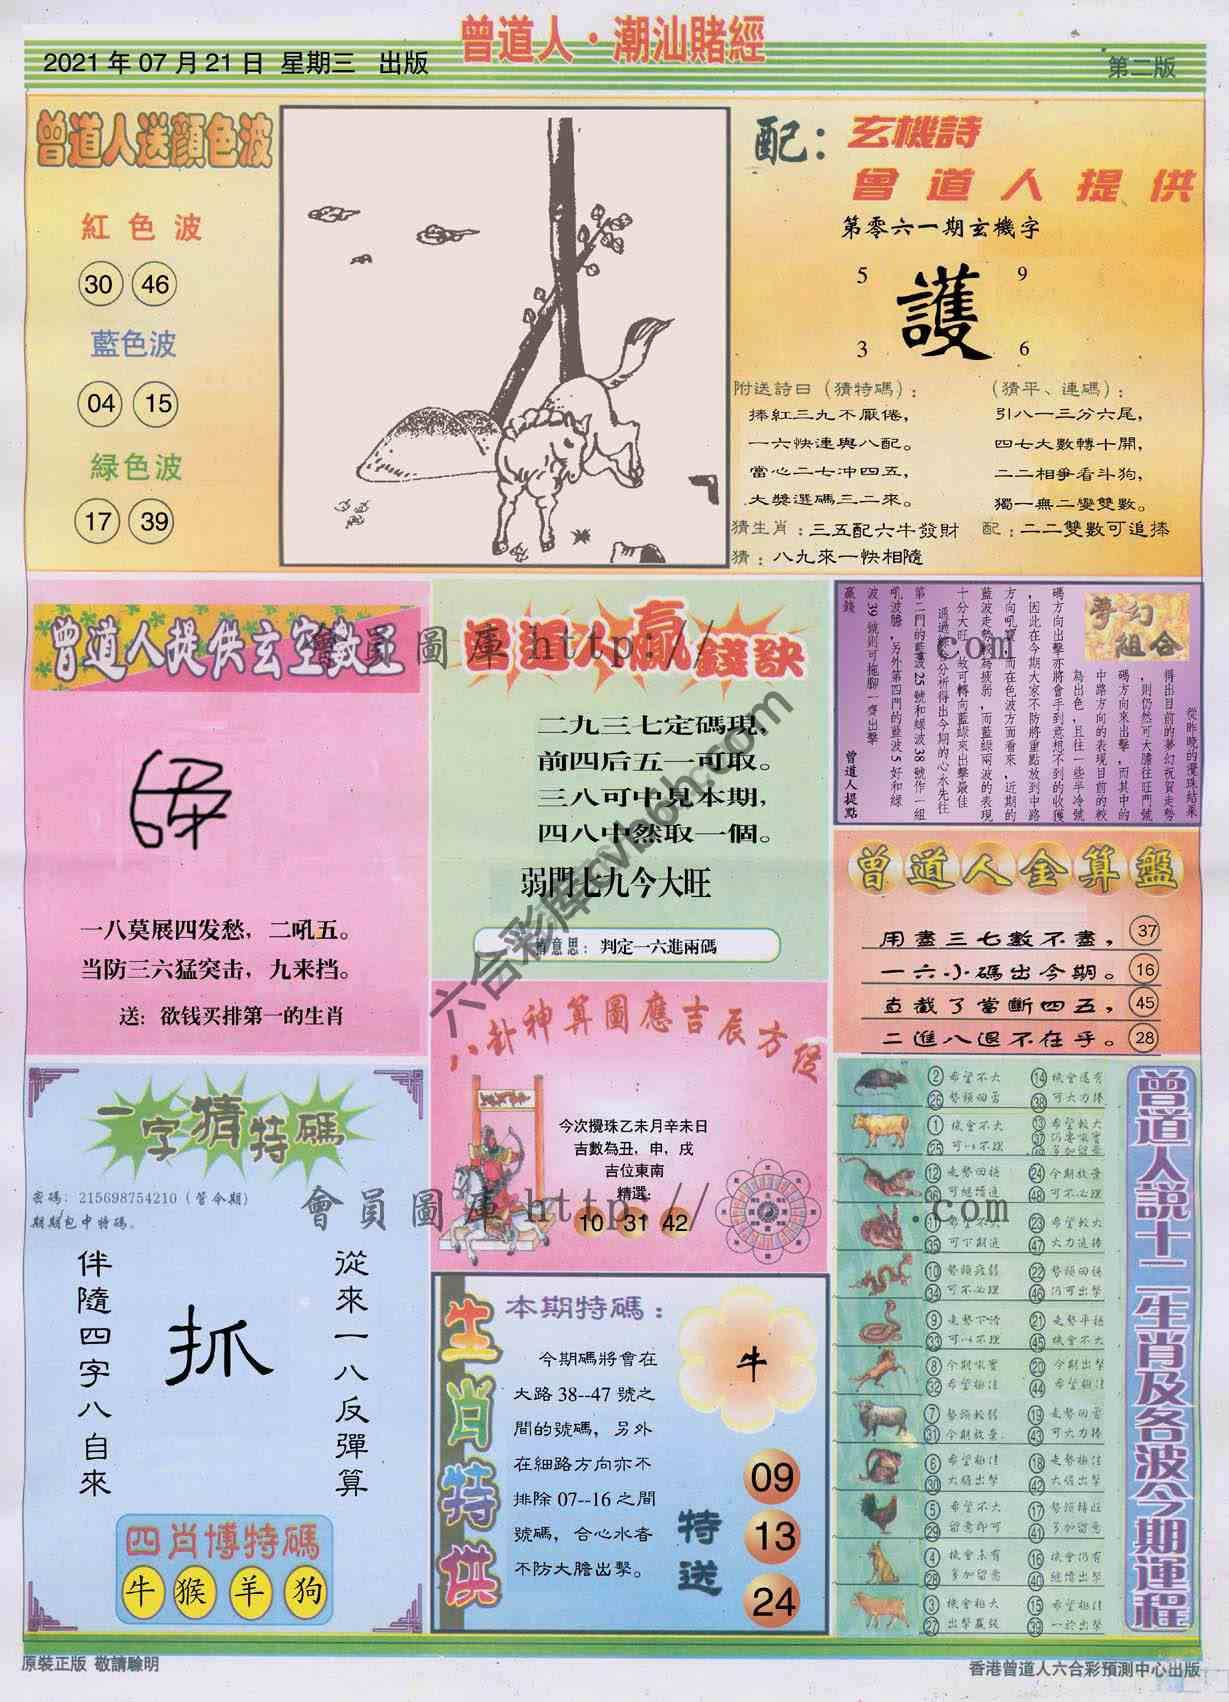 曾道人·潮汕賭經
2021年07月21日 星期三 出版
第二版
曾道人送顏色波
紅色波
30 46
藍色波
04 15
緑色波
17 39
配：玄機詩
曾道人提供
第零六一期玄機字
5 9
護
3 6
附送詩曰（猜特碼）：
捧紅三九不厭倦，
一六快連與八配。
當心二七沖四五，
大獎選碼三二來。
（猜平、連碼）：
引八一三分六尾，
四七大數轉十開，
二二相爭看斗狗，
獨一無二變雙數。
猜生肖：三五配六牛發財 配：二二雙數可追捧
猜：八九來一快相隨
曾道人提供玄空數王
一八莫展四发愁，二吼五。
当防三六猛突击，九来挡。
送：欲钱买排第一的生肖
曾道人贏錢訣
二九三七定碼現，
前四后五一可取。
三八可中見本期，
四八中然取一個。
弱門七九今大旺
意思：判定一六進兩碼
夢幻組合
從昨晚的攪珠結果
得出目前的夢幻祝賀走勢
，則仍然可大膽往旺門號
碼方向來出擊，而其中的
中路方向的表現目前的較
為出色，且往一些半冷號
碼方向出擊亦將會手到意想不到的收獲
，因此在今期大家不防將重點放到中路
方向吼寶，而在色波方面看來，近期的
藍波走勢較為疲弱，而藍綠兩波的表現
十分大旺，故可轉向藍綠來出擊最佳
通過綜合分析得出今期的心水先往
第二門的藍波25號和緑波38號作一組
吼波膽，另外第四門的藍波5好和緑
波39號則可拖腳一齊出擊
贏錢 曾道人提點
曾道人金算盤
用盡三七數不盡， 37
一六小碼出今期。 16
直截了當斷四五， 45
二進八退不在乎。 28
八卦神算圖應吉辰方位
今次攪珠乙未月辛未日
吉數為丑，申，戌
吉位東南
精選:
10 31 42
一字猜特碼
密碼：215698754210（管今期）
期期包中特碼。
從來一八反彈算
抓
伴隨四字八自來
四肖博特碼
牛 猴 羊 狗
生肖特供
本期特碼：
今期碼將會在
大路38--47號之
間的號碼，另外
在細路方向亦不
排除07--16之間
號碼，合心水者
不防大膽出擊。
牛
特送
09
13
24
曾道人說十二生肖及各波今期運程
2 希望不大 14 機會還有
26 勢頭回勇 38 可大力捧
1 機會不大 13 希望較大
25 可以不理 49 多加留意
12 走勢回穩 24 今期放量
36 可繼續追 48 可不必理
11 希望不大 23 希望較大
35 可下期追 47 大力追捧
10 勢頭疲弱 22 勢頭回穩
34 可不必理 46 仍可出擊
9 走勢下滑 21 走勢平穩
33 可以不理 45 機會不大
8 今期吼實 20 今期出擊
32 希望極佳 44 希望極佳
7 勢頭較弱 19 走勢回落
31 今期放量 43 可大力捧
6 希望極佳 18 走勢極佳
30 大膽出擊 42 大膽出擊
5 希望不大 17 勢頭轉旺
29 留意即可 41 多加留意
4 機會未有 16 機會仍有
28 多加留意 40 繼續出擊
3 機會極大 15 希望極佳
27 出擊贏錢 39 一於出擊
會員圖庫 http:// .com
六合彩库cvl6h.com
會員圖庫 http:// .com
原裝正版 敬請驗明
香港曾道人六合彩預測中心出版